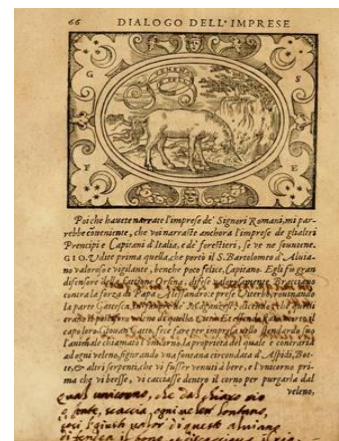 66 DIALOGO DELL'IMPRESE
VENENA
PELLO
G S
F E
Poi che havete narrate l'imprese de' Signori Romani, mi par-
rebbe conveniente, che voi narraste anchora l'imprese de gli altri
Prencipi e Capitani d'Italia, e de' forestieri, se ve ne sovviene.
GIO. Udite prima quella, che portò il S. Bartolomeo d'Alvia-
no valoroso e vigilante, benche poco felice, Capitano. Egli fu gran
difensore della fattione Orsina, difese valorosamente Bracciano
contra la forza di Papa Alessandro: prese Viterbo, rovinando
la parte Gattesca
capo loro Giovan Gatto, fece fare per impresa nello stendardo suo
l'animale chiamato l'Unicorno, la proprietà del quale è contraria
ad ogni veleno, figurando una fontana circondata d'Aspidi, Bot-
te, & altri serpenti, che vi fusser venuti à bere, e l'unicorno pri-
ma che vi bevesse, vi cacciasse dentro il corno per purgarla dal
veleno,
qual unicorno, che dal chiaro rio
o fonte, scaccia ogni velen lontano,
così